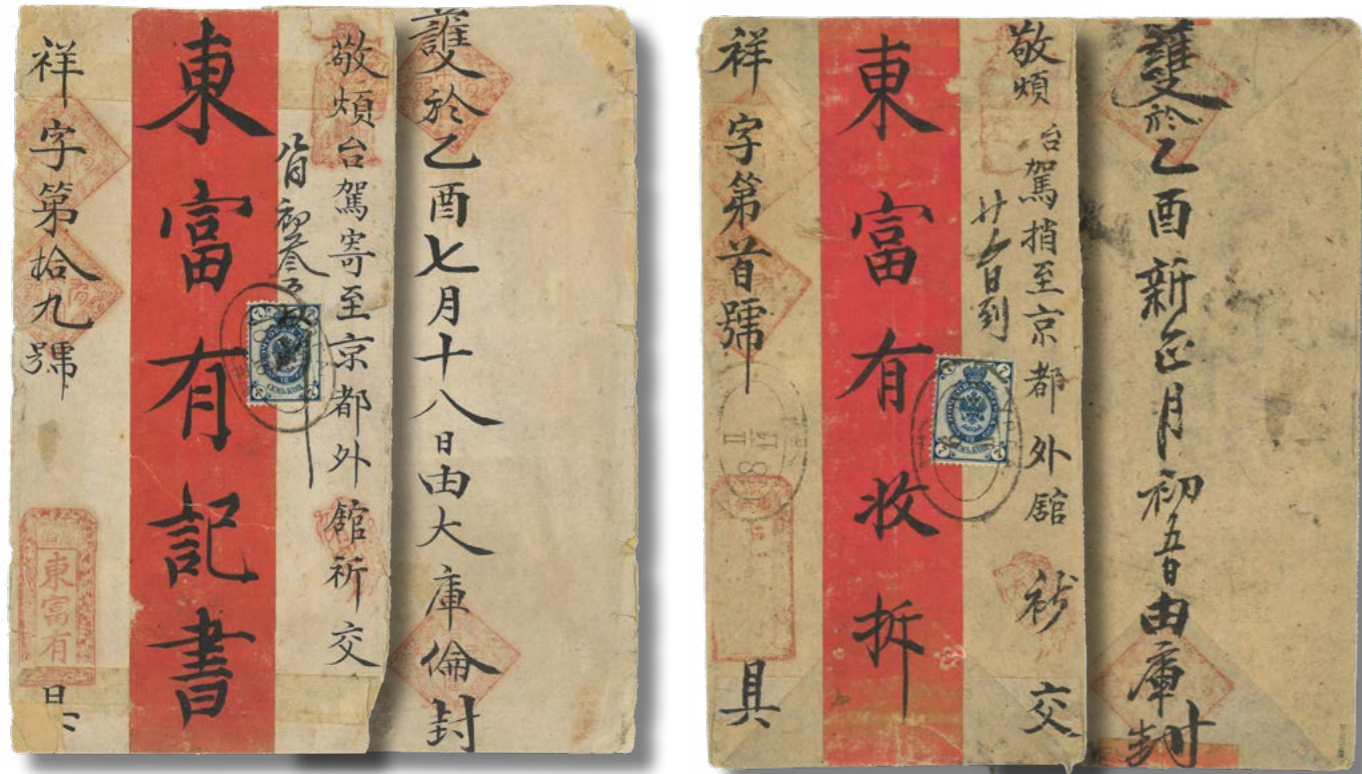 護於乙酉七月十八日由大庫倫封
敬煩台駕寄至京都外舘祈交
東富有記書
祥字第拾九號
東富有
具
護於乙酉新正月初五日由庫封
敬煩台駕捎至京都外舘祈交
廿七日到
東富有收拆
祥字第首號
具